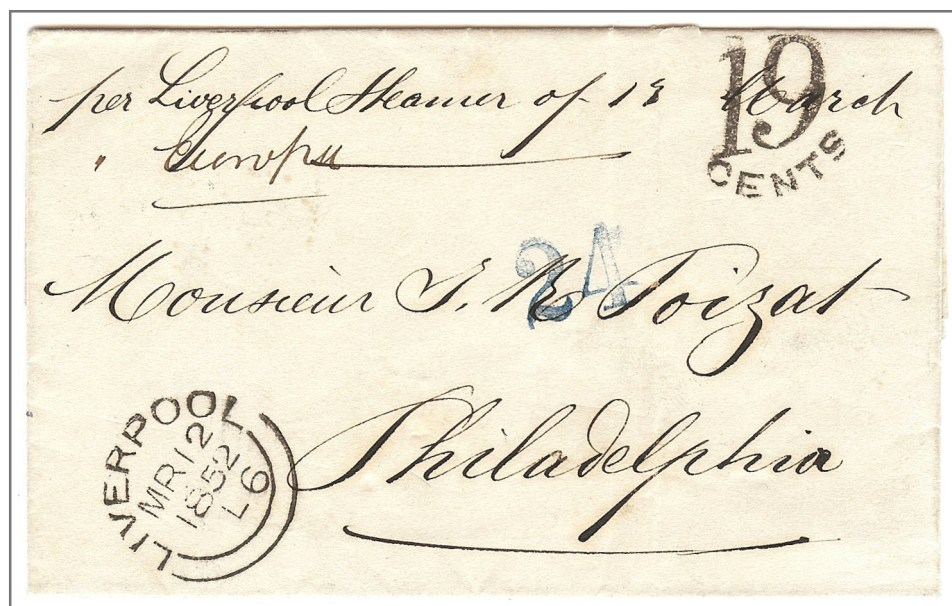 per Liverpool Steamer of 13 March
19
CENTS
" Europa
24
Monsieur J. B. Poizat
Philadelphia
LIVERPOOL
MR 12
1852
L6